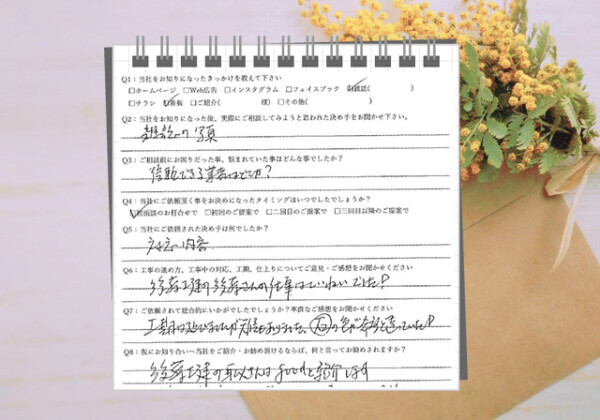 Q1:当社をお知りになったきっかけを教えて下さい
□ホームページ □Web広告 □インスタグラム □フェイスブック ☑雑誌( )
□チラシ ☑看板 □ご紹介( 様) □その他( )
Q2:当社をお知りになった後、実際にご相談してみようと思われた決め手をお聞かせ下さい。
雑誌の写真
Q3:ご相談前にお困りだった事、悩まれていた事はどんな事でしたか?
信頼できる業者はどこか?
Q4:当社にご依頼頂く事をお決めになったタイミングはいつでしたでしょうか?
☑初面談のお打合せで □初回のご提案で □二回目のご提案で □三回目以降のご提案で
Q5:当社にご依頼された決め手は何でしたか?
内容
Q6:工事の進め方、工事中の対応、工期、仕上りについてご意見・ご感想をお聞かせください
さんの仕事はていねいでした!
Q7:ご依頼されて総合的にいかがでしたでしょうか?率直なご感想をお聞かせください
工期は
Q8:仮にお知り合いへ当社をご紹介・お勧め頂けるならば、何と言ってお勧めされますか?
の さんは goodと紹介します